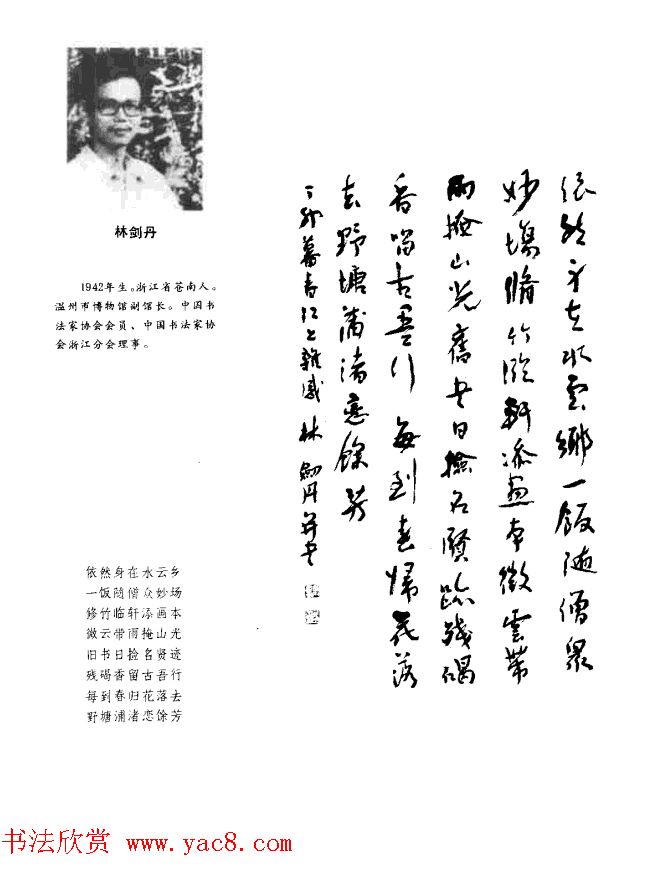 林剑丹
1942年生。浙江省苍南人。
温州市博物馆副馆长。中国书
法家协会会员、中国书法家协
会浙江分会理事。
依然身在水云乡
一饭随僧众妙场
修竹临轩添画本
微云带雨掩山光
旧书日捡名贤迹
残碣香留古吾行
每到春归花落去
野塘浦渚恋馀芳
依然身在水雲鄉一飯隨僧眾
妙場脩竹臨軒添畫本微雲帶
雨掩山光舊書日撿名賢跡殘碣
香留古吾行每到春歸花落
去野塘蒲渚戀餘芳
丁卯暮春江上雜感林劍丹並書
书法欣赏 www.yac8.com